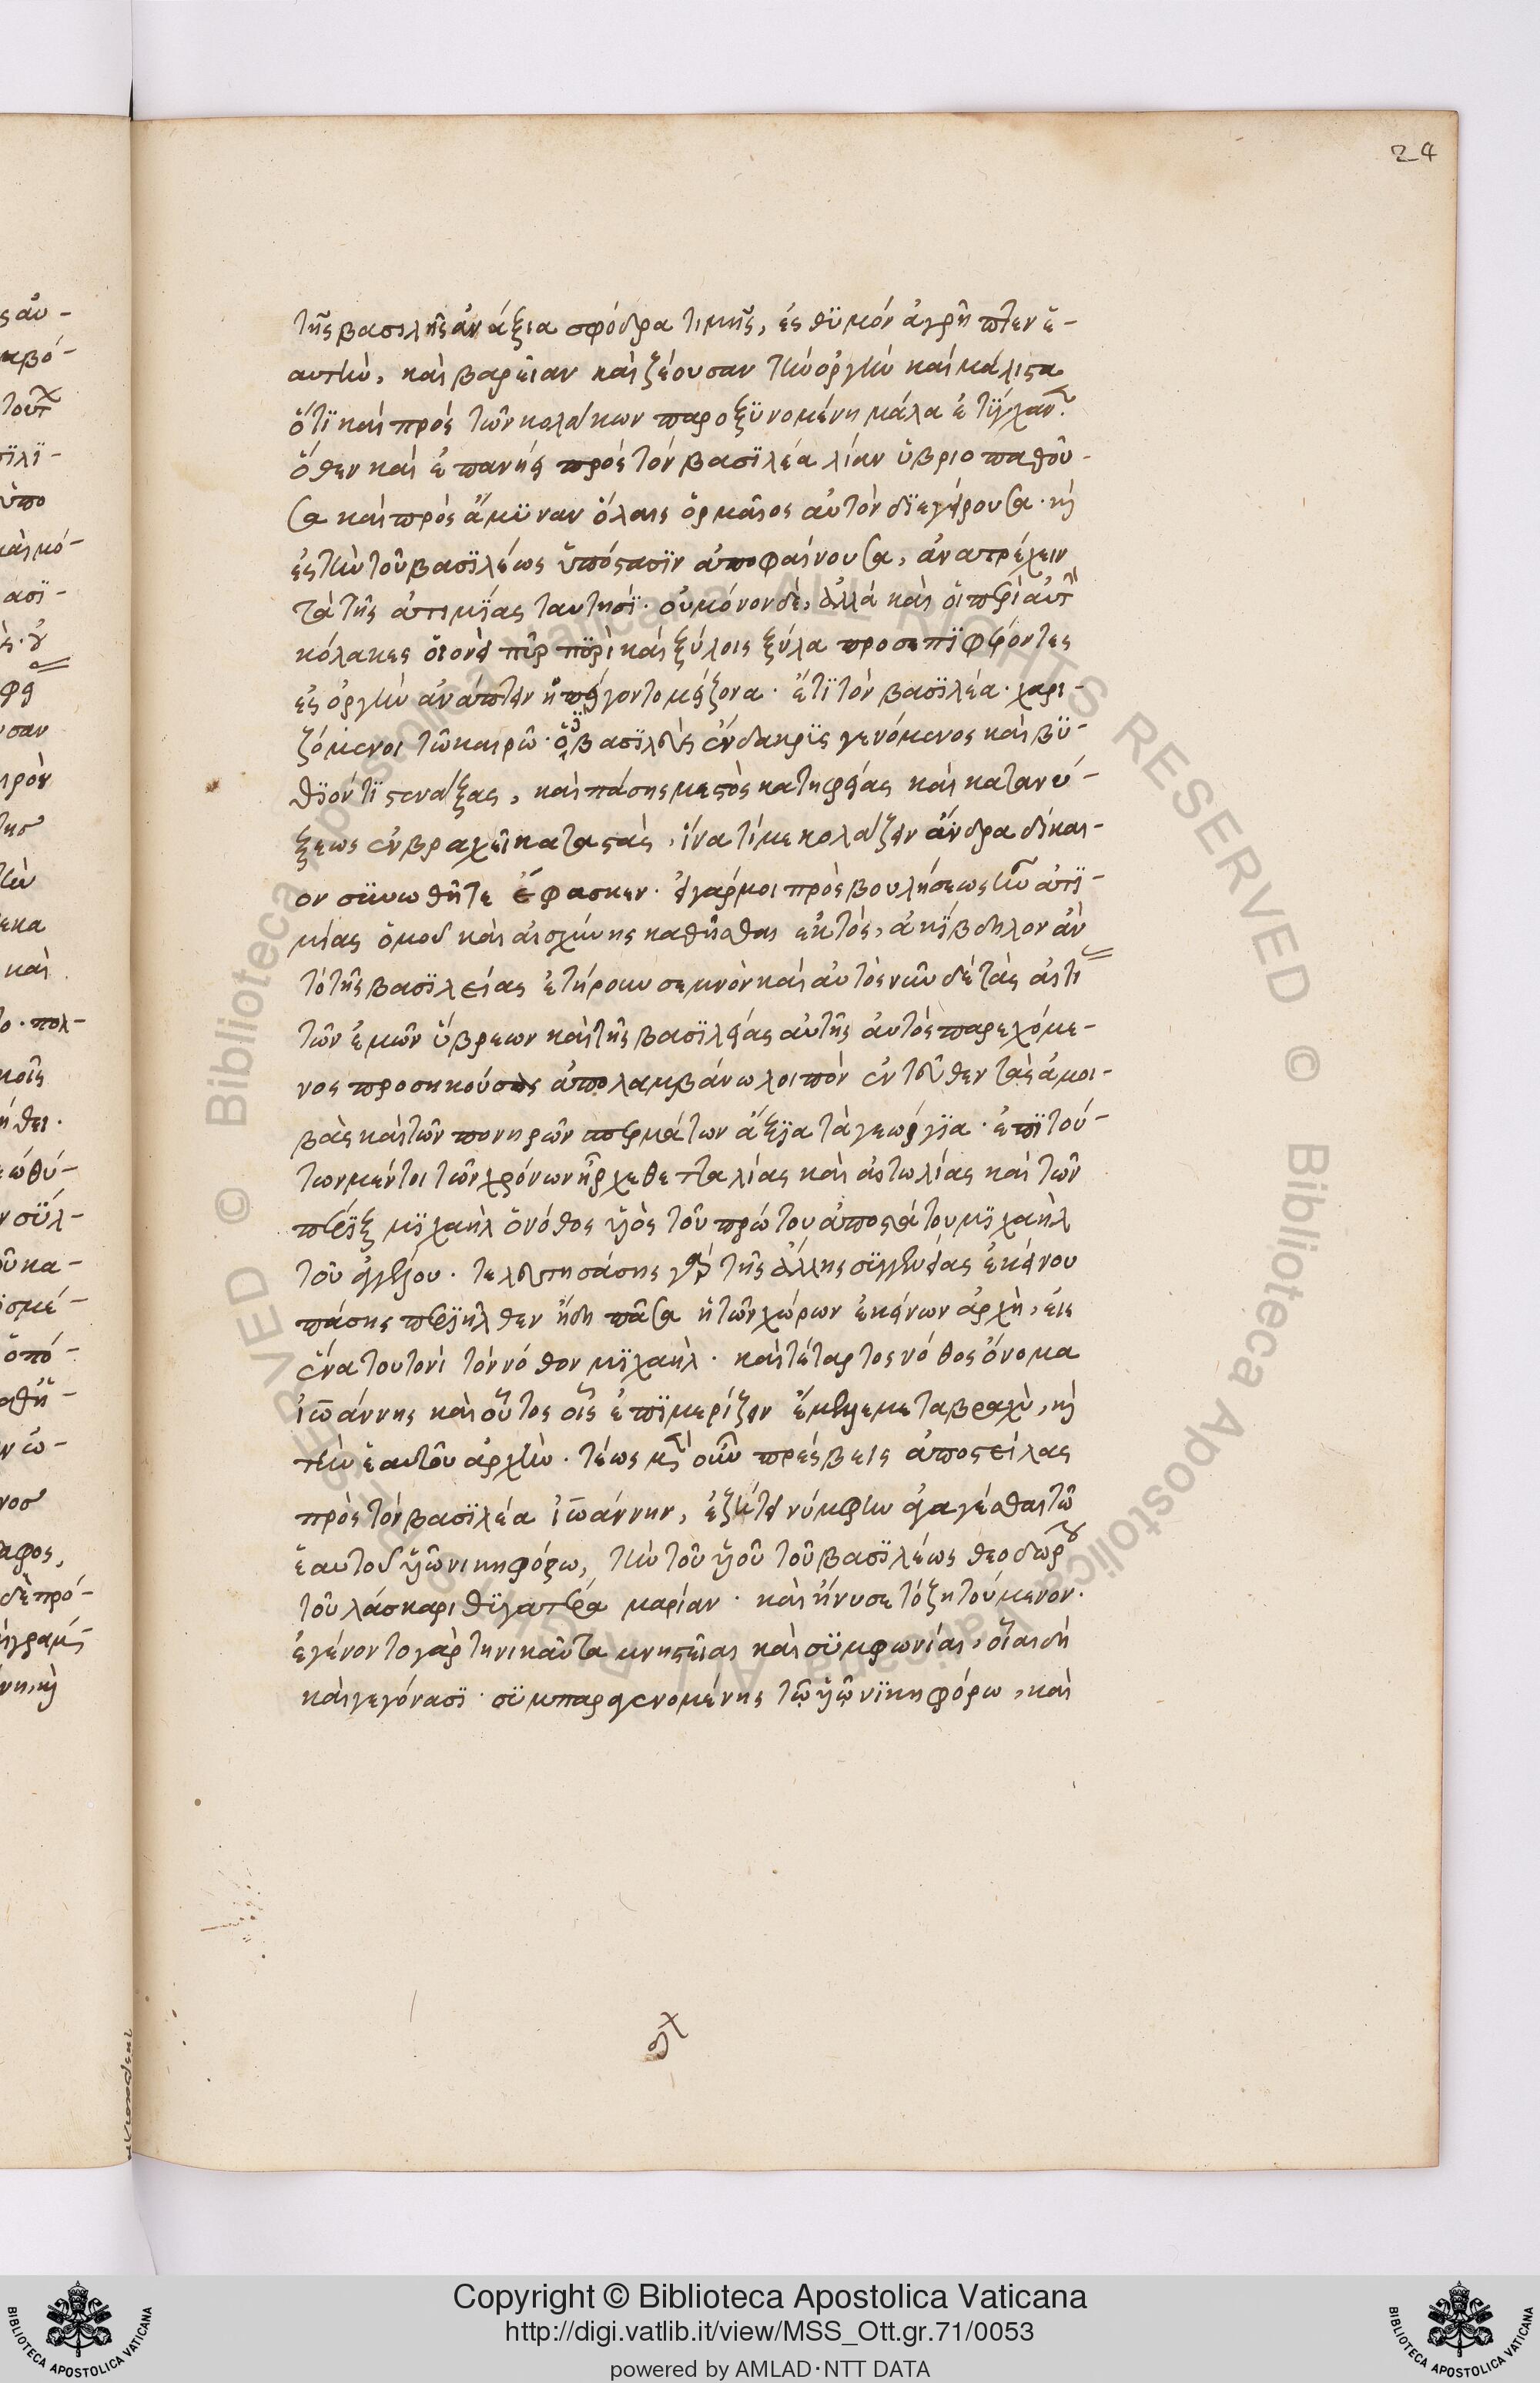 24
τῆς βασιλῆς ἀνάξια σφόδρα τιμῆς, ἐς θϋμὸν ἀγρὴ πτεν ἑ-
αυτὴν, καὶ βαρεῖαν καὶ ζέουσαν τὴν ὀργὴν καὶ μάλιστα
ὅτϊ καὶ πρὸς τῶν κολάκων παροξϋνομένη μάλα ἐτϋγχαν.
ὅθεν καὶ ἐπανήει πρὸς τὸν βασϊλέα λίαν ὑβριοπαθοῦ-
σα καὶ πρὸς ἄμϋναν ὅλαις ὁρμαῖς αὐτὸν διεγείρουσα· καὶ
ἐς τὴν τοῦ βασϊλέως ὑπόστασϊν ἀποφαίνουσα, ἀνατρέχειν
τὰ τῆς ἀτιμΐας ταυτησΐ· οὐ μόνον δὲ, ἀλλὰ καὶ οἱ περὶ αὐτὴν
κόλακες οἱονεὶ πῦρ πϋρὶ καὶ ξύλοις ξύλα προσεπϊφέροντες
εἰς ὀργὴν ἀνάπτειν ἠπείγοντο μείζονα· ἔτϊ τὸν βασϊλέα· χαρι-
ζόμενοι τῶ καιρῶ· ὁ βασϊλεὺς ἔνδακρϊς γενόμενος καὶ βϋ-
θϊόν τϊ στενάξας, καὶ πάσης μεστὸς κατηφείας καὶ κατανύ-
ξεως ἐν βραχεῖ καταστὰς, ἵνα τί με κολάζειν ἄνδρα δίκαι-
ον συνωθῆτε ἔφασκεν· εἰ γάρ μοι πρὸς βουλήσεως ἦν ἀτϊ-
μίας ὁμοῦ καὶ αἰσχύνης καθῆσθαι ἐκτὸς, ἀκϊβδηλον ἂν
τὸ τῆς βασϊλείας ἐτήρουν σεμνὸν καὶ αὐτὸς νῦν δὲ τὰς αἰτί
τῶν ἐμῶν ὕβρεων καὶ τῆς βασϊλείας αὐτῆς αὐτὸς παρεχόμε-
νος προσηκούσας ἀπολαμβάνω λοιπὸν ἐντεῦθεν τὰς ἀμοι-
βὰς καὶ τῶν πονηρῶν σπερμάτων ἄξϊα τὰ γεώργϊα· ἐπϊ τού-
των μέντοι τῶν χρόνων ἦρχε θετταλίας καὶ αἰτωλίας καὶ τῶν
πέριξ μϊχαὴλ ὁ νόθος ὑϊὸς τοῦ πρώτου ἀποστάτου μϊχαὴλ
τοῦ ἀγγέλου· τελευτησάσης γὰρ τῆς ἄλλης σϋγγενείας ἐκείνου
πάσης περϊῆλθεν ἤδη πᾶσα ἡ τῶν χώρων ἐκείνων ἀρχὴ, εἰς
ἕνα τουτονὶ τὸν νόθον μϊχαὴλ· καὶ τέταρτος νόθος ὄνομα
ἰωάννης καὶ οὗτος οἷς ἐπϊμερίζειν ἔμελλε μετὰ βραχὺ, καὶ
τὴν ἑαυτοῦ ἀρχὴν· τέως μὲν οὖν πρέσβεις ἀποστείλας
πρὸς τὸν βασϊλέα ἰωάννην, ἐζήτει νύμφην ἀγαγέσθαι τῶ
ἑαυτοῦ ὑϊῶ νικηφόρω, τὴν τοῦ ὑϊοῦ τοῦ βασϊλέως θεοδώρου
τοῦ λάσκαρι θϋγατέρα μαρίαν· καὶ ἤνυσε τὸ ζητούμενον·
ἐγένοντο γὰρ τηνικαῦτα μνηστεῖαι καὶ σϋμφωνίαι, οἷαι δὴ
καὶ γεγόνασϊ· σϋμπαραγενομένης τῶ ὑϊῶ νϊκηφόρω, καὶ